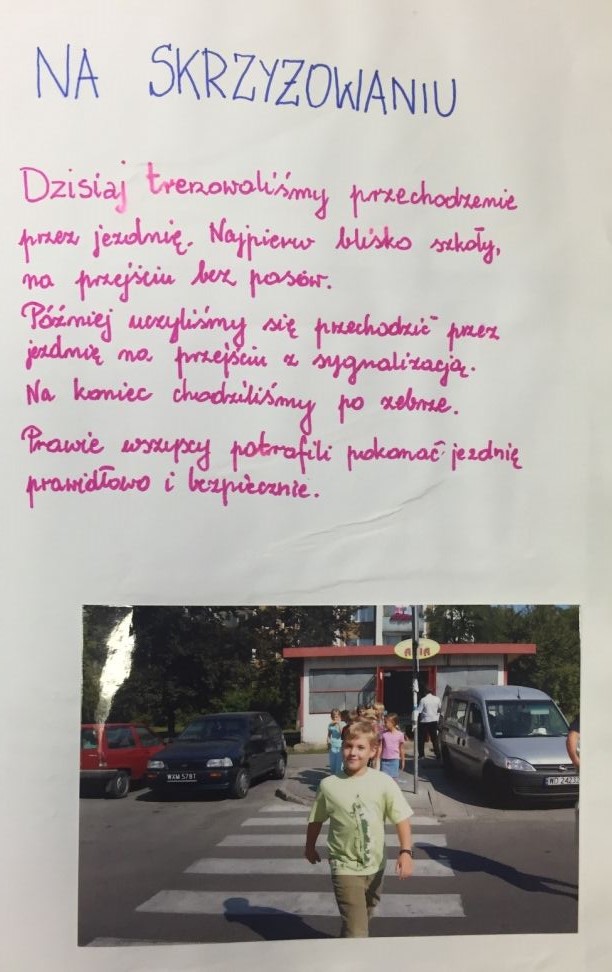 NA SKRZYŻOWANIU
Dzisiaj trenowaliśmy przechodzenie
przez jezdnię. Najpierw blisko szkoły,
na przejściu bez pasów.
Później uczyliśmy się przechodzić przez
jezdnię na przejściu z sygnalizacją.
Na koniec chodziliśmy po zebrze.
Prawie wszyscy potrafili pokonać jezdnię
prawidłowo i bezpiecznie.
WXM 5781